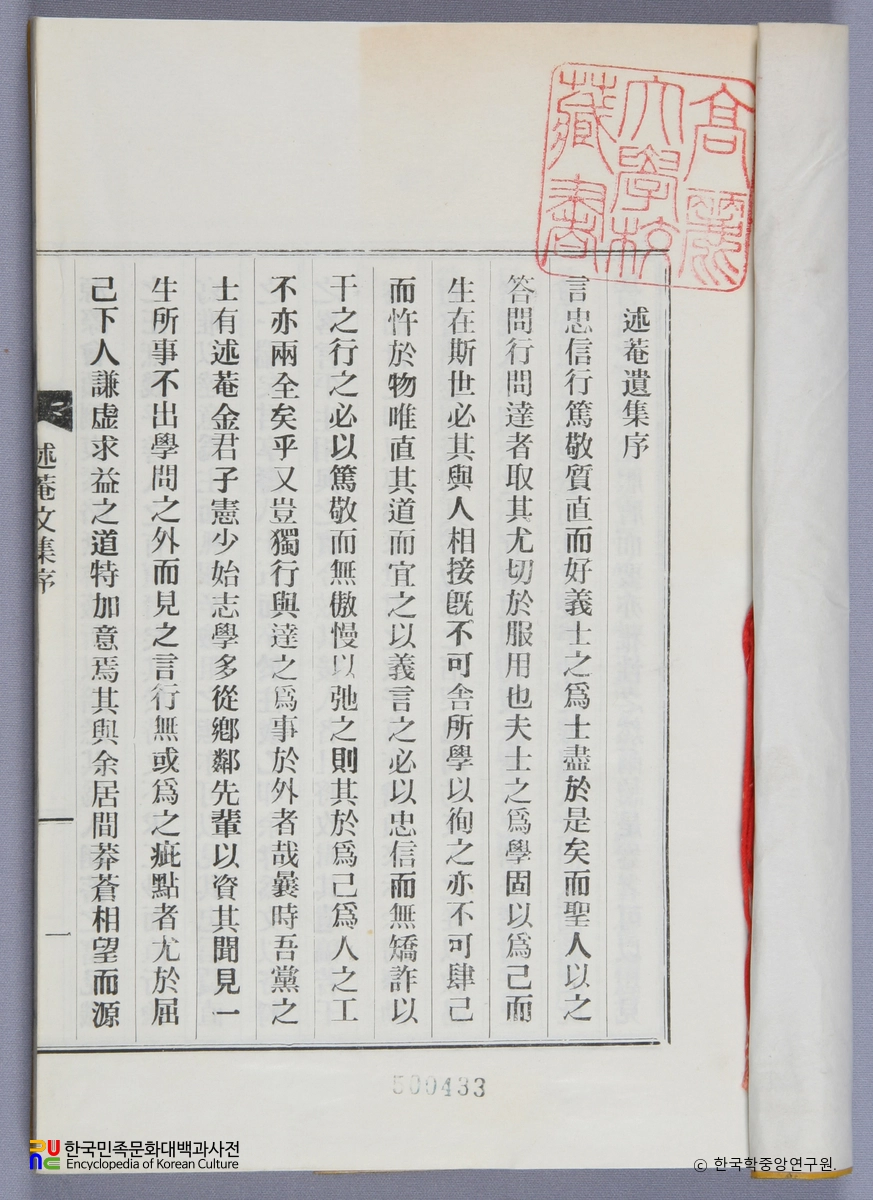 高麗
大學校
藏書
述菴遺集序
言忠信行篤敬質直而好義士之爲士盡於是矣而聖人以之
答問行問達者取其尤切於服用也夫士之爲學固以爲己而
生在斯世必其與人相接旣不可舍所學以徇之亦不可肆己
而忤於物唯直其道而宜之以義言之必以忠信而無矯詐以
干之行之必以篤敬而無傲慢以弛之則其於爲己爲人之工
不亦兩全矣乎又豈獨行與達之爲事於外者哉曩時吾黨之
士有述菴金君子憲少始志學多從鄕鄰先輩以資其聞見一
生所事不出學問之外而見之言行無或爲之疵點者尤於屈
己下人謙虛求益之道特加意焉其與余居間莽蒼相望而源
述菴文集序
一
500433
한국민족문화대백과사전
Encyclopedia of Korean Culture
© 한국학중앙연구원.